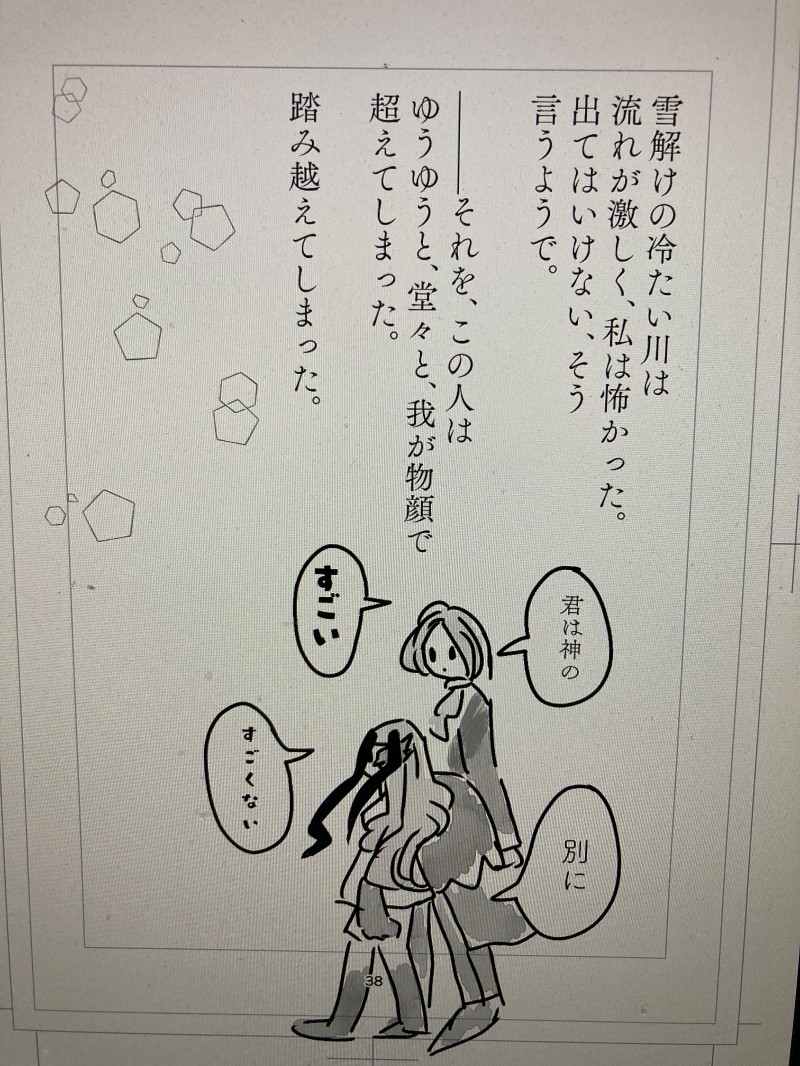 雪解けの冷たい川は
流れが激しく、私は怖かった。
出てはいけない、そう
言うようで。
――それを、この人は
ゆうゆうと、堂々と、我が物顔で
超えてしまった。
踏み越えてしまった。
君は神の
すごい
別に
すごくない
38